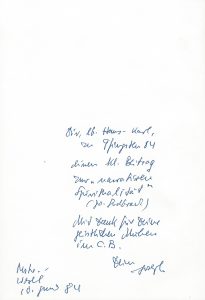 Dir, lb. Hans-Karl,
zu Pfingsten 84
diesen kl. Beitrag
zur „narrativen
Spiritualität“
Mit Dank für Deine
geistlichen
im C.B.
Dein
10. Juni 84